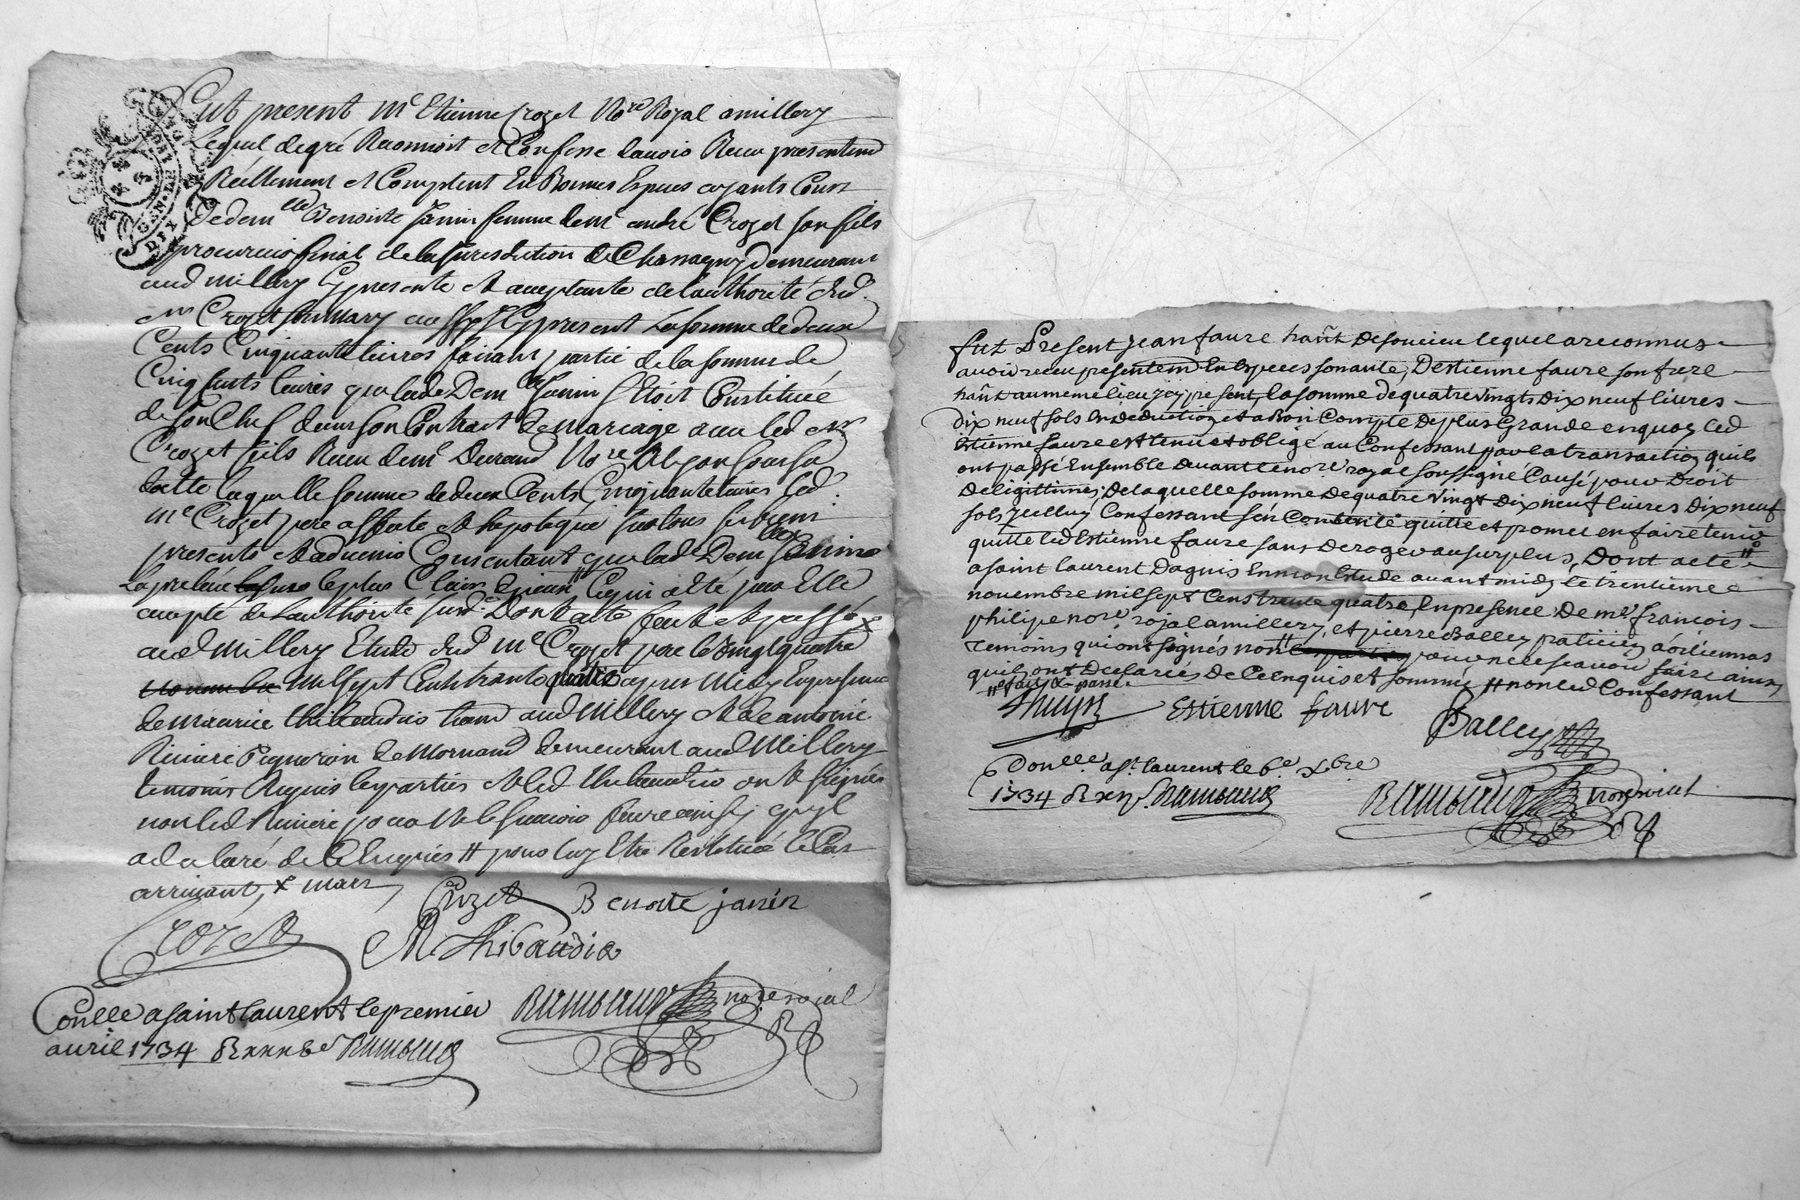 Fut present Me Etienne Crozet Nore Royal a millery
Lequel de gré Reconnoit et Confesse d'avoir Receu presentemt
Réellement et Comptent En Bonnes Especes ayants Cours
De demlle Benoite Janin femme de mr andré Crozet son fils
procureur fiscal de la Jurisdiction de Chassagny demeurant
aud millery Cy presente et acceptante de l'authorité dud.
mr Crozet son mary aussy Cy present La somme de deux
Cents Cinquante livres faisant partie de la somme de
Cinq Cents livres que lade Demlle Janin s'Etoit Constituée
de son Chef dans son Contract de mariage avec led mr
Crozet fils Receu de me Durand Nore
datte laquelle somme de deux Cents Cinquante livres led.
me Crozet pere affecte et hypoteque sur tous ses biens
presents et advenir Consentant que lade Demlle Janin
La preleve le plus Clair d'yceux Ce qui a eté par Elle
accepté de l'authorité susd. Dont acte fait et passé x
aud Millery Etude dud me Crozet pere le Vingt quatre
novembre Mil Sept Cents trente quatre apres Midy En presence
de Maurice thibaudier hant aud Millery et de antoine
Riviere Vigneron de Mornand demeurant aud Millery
temoins Requis les parties et led thibaudier ont signés
non led Riviere pour ne le Scavoir faire ainsy qu'yl
a declaré de Ce Enquis # pour luy Etre Restituée le Cas
arrivant, x mars
Crozet Benoite janin
Crozet M Thibaudier
Conllé a saint laurent le premier Rambaud nore roial
avril 1734 R Rambaud
GEN DE LION
DIX
fut Present jean faure hañt de soucieu lequel a reconnus
avoir receu presentemt En Especes sonante, D'estienne faure son frere
hañt au meme lieu jcy present, la somme de quatre vingts dix neuf livres
dix neuf sols En deduction et a Bon Compte de plus Grande en quoy led
Estienne faure est tenu et obligé au Confessant par la transaction qu'ils
ont passé Ensemble devant le nore royal soussigné Causé pour Droit
De legittimes, de laquelle somme de quatre vingt dix neuf livres dix neuf
sols jcelluy Confessant s'en Contente quitte et promet en faire tenir
quitte led Estienne faure sans deroger au surplus, Dont acte #
a saint laurent Dagnis En mon Etude avant midy le trentieme
novembre mil sept Cens trente quatre, En presence De mre francois
philipe nore royal a millery, et pierre Balley praticien a orlienas
temoins qui ont signés non # pour ne le scavoir faire ainsy
qu'ils ont declarés de Ce Enquis et sommés # non led Confessant
# fait & passé
Estienne faure Balley
Conllé a st laurent le 6e xbre
1734 R xij s Rambaud Rambaud nore roial